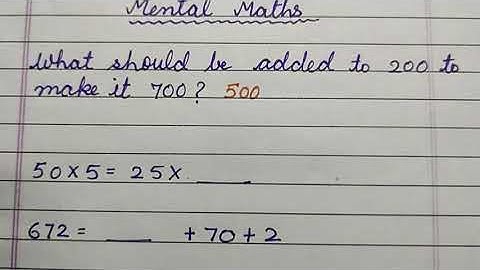 Mental Maths
What should be added to 200 to
make it 700? 500
50×5= 25×. ____
672= ____ +70+2